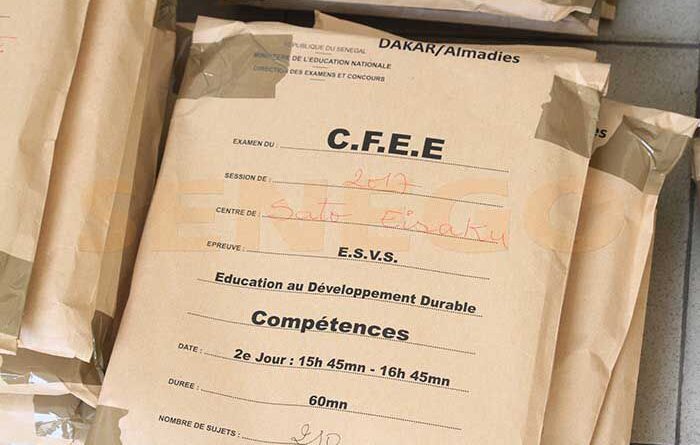 DAKAR/Almadies
REPUBLIQUE DU SENEGAL
MINISTERE DE L'EDUCATION NATIONALE
DIRECTION DES EXAMENS ET CONCOURS
EXAMEN DU : C.F.E.E
SESSION DE : 2017
CENTRE DE : Sato Eisaku
EPREUVE : E.S.V.S.
Education au Développement Durable
Compétences
DATE : 2e Jour : 15h 45mn - 16h 45mn
DUREE : 60mn
NOMBRE DE SUJETS : 210
SENEGO